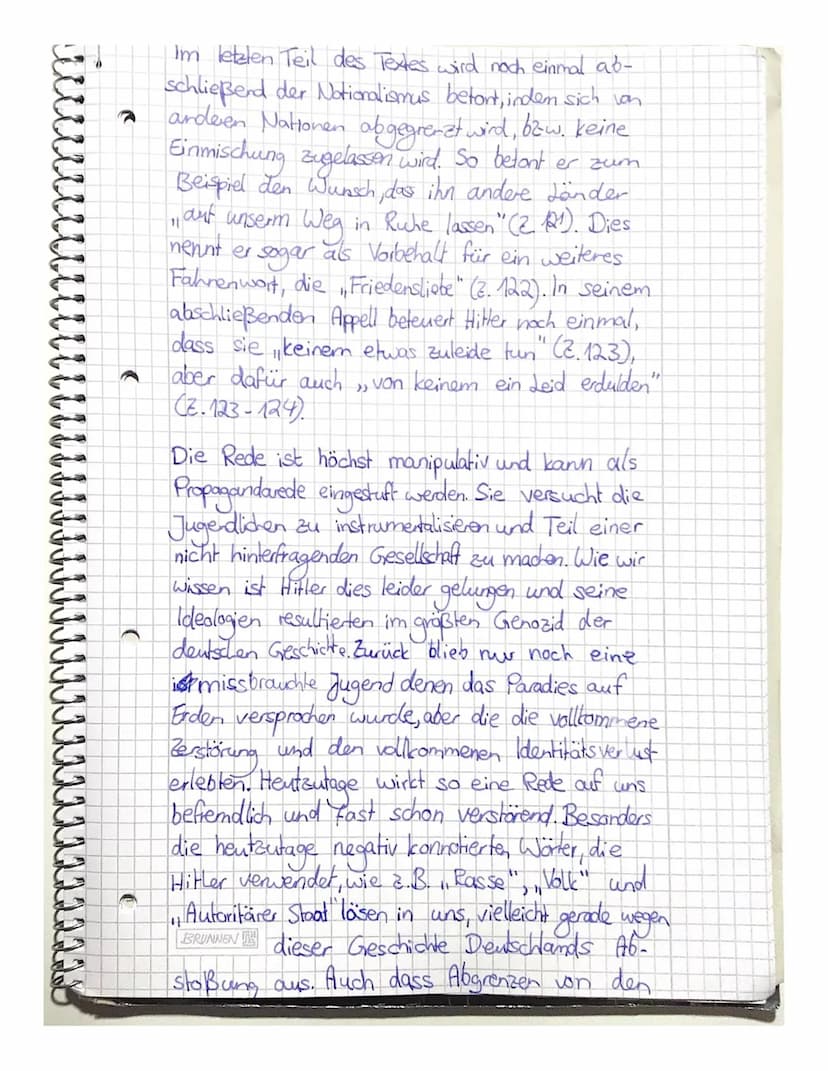 Im letzten Teil des Textes wird noch einmal ab-
schließend der Nationalismus betont, indem sich von
anderen Nationen abgegrenzt wird, bzw. keine
Einmischung zugelassen wird. So betont er zum
Beispiel den Wunsch, das ihn andere Länder
„auf unserm Weg in Ruhe lassen" (Z. 121). Dies
nennt er sogar als Vorbehalt für ein weiteres
Fahnenwort, die „Friedensliebe" (Z. 122). In seinem
abschließenden Appell beteuert Hitler noch einmal,
dass sie „keinem etwas zuleide tun" (Z. 123),
aber dafür auch „von keinem ein Leid erdulden"
(Z. 123-124).
Die Rede ist höchst manipulativ und kann als
Propagandarede eingestuft werden. Sie versucht die
Jugendlichen zu instrumentalisieren und Teil einer
nicht hinterfragenden Gesellschaft zu machen. Wie wir
wissen ist Hitler dies leider gelungen und seine
Ideologien resultierten im größten Genozid der
deutschen Geschichte. Zurück blieb nur noch eine
missbrauchte Jugend denen das Paradies auf
Erden versprochen wurde, aber die die vollkommene
Zerstörung und den vollkommenen Identitätsverlust
erlebten. Heutzutage wirkt so eine Rede auf uns
befremdlich und fast schon verstörend. Besonders
die heutzutage negativ konnotierten Wörter, die
Hitler verwendet, wie z.B. „Rasse", „Volk" und
„Autoritärer Staat" lösen in uns, vielleicht gerade wegen
BRUNNEN
dieser Geschichte Deutschlands Ab-
stoßung aus. Auch dass Abgrenzen von den